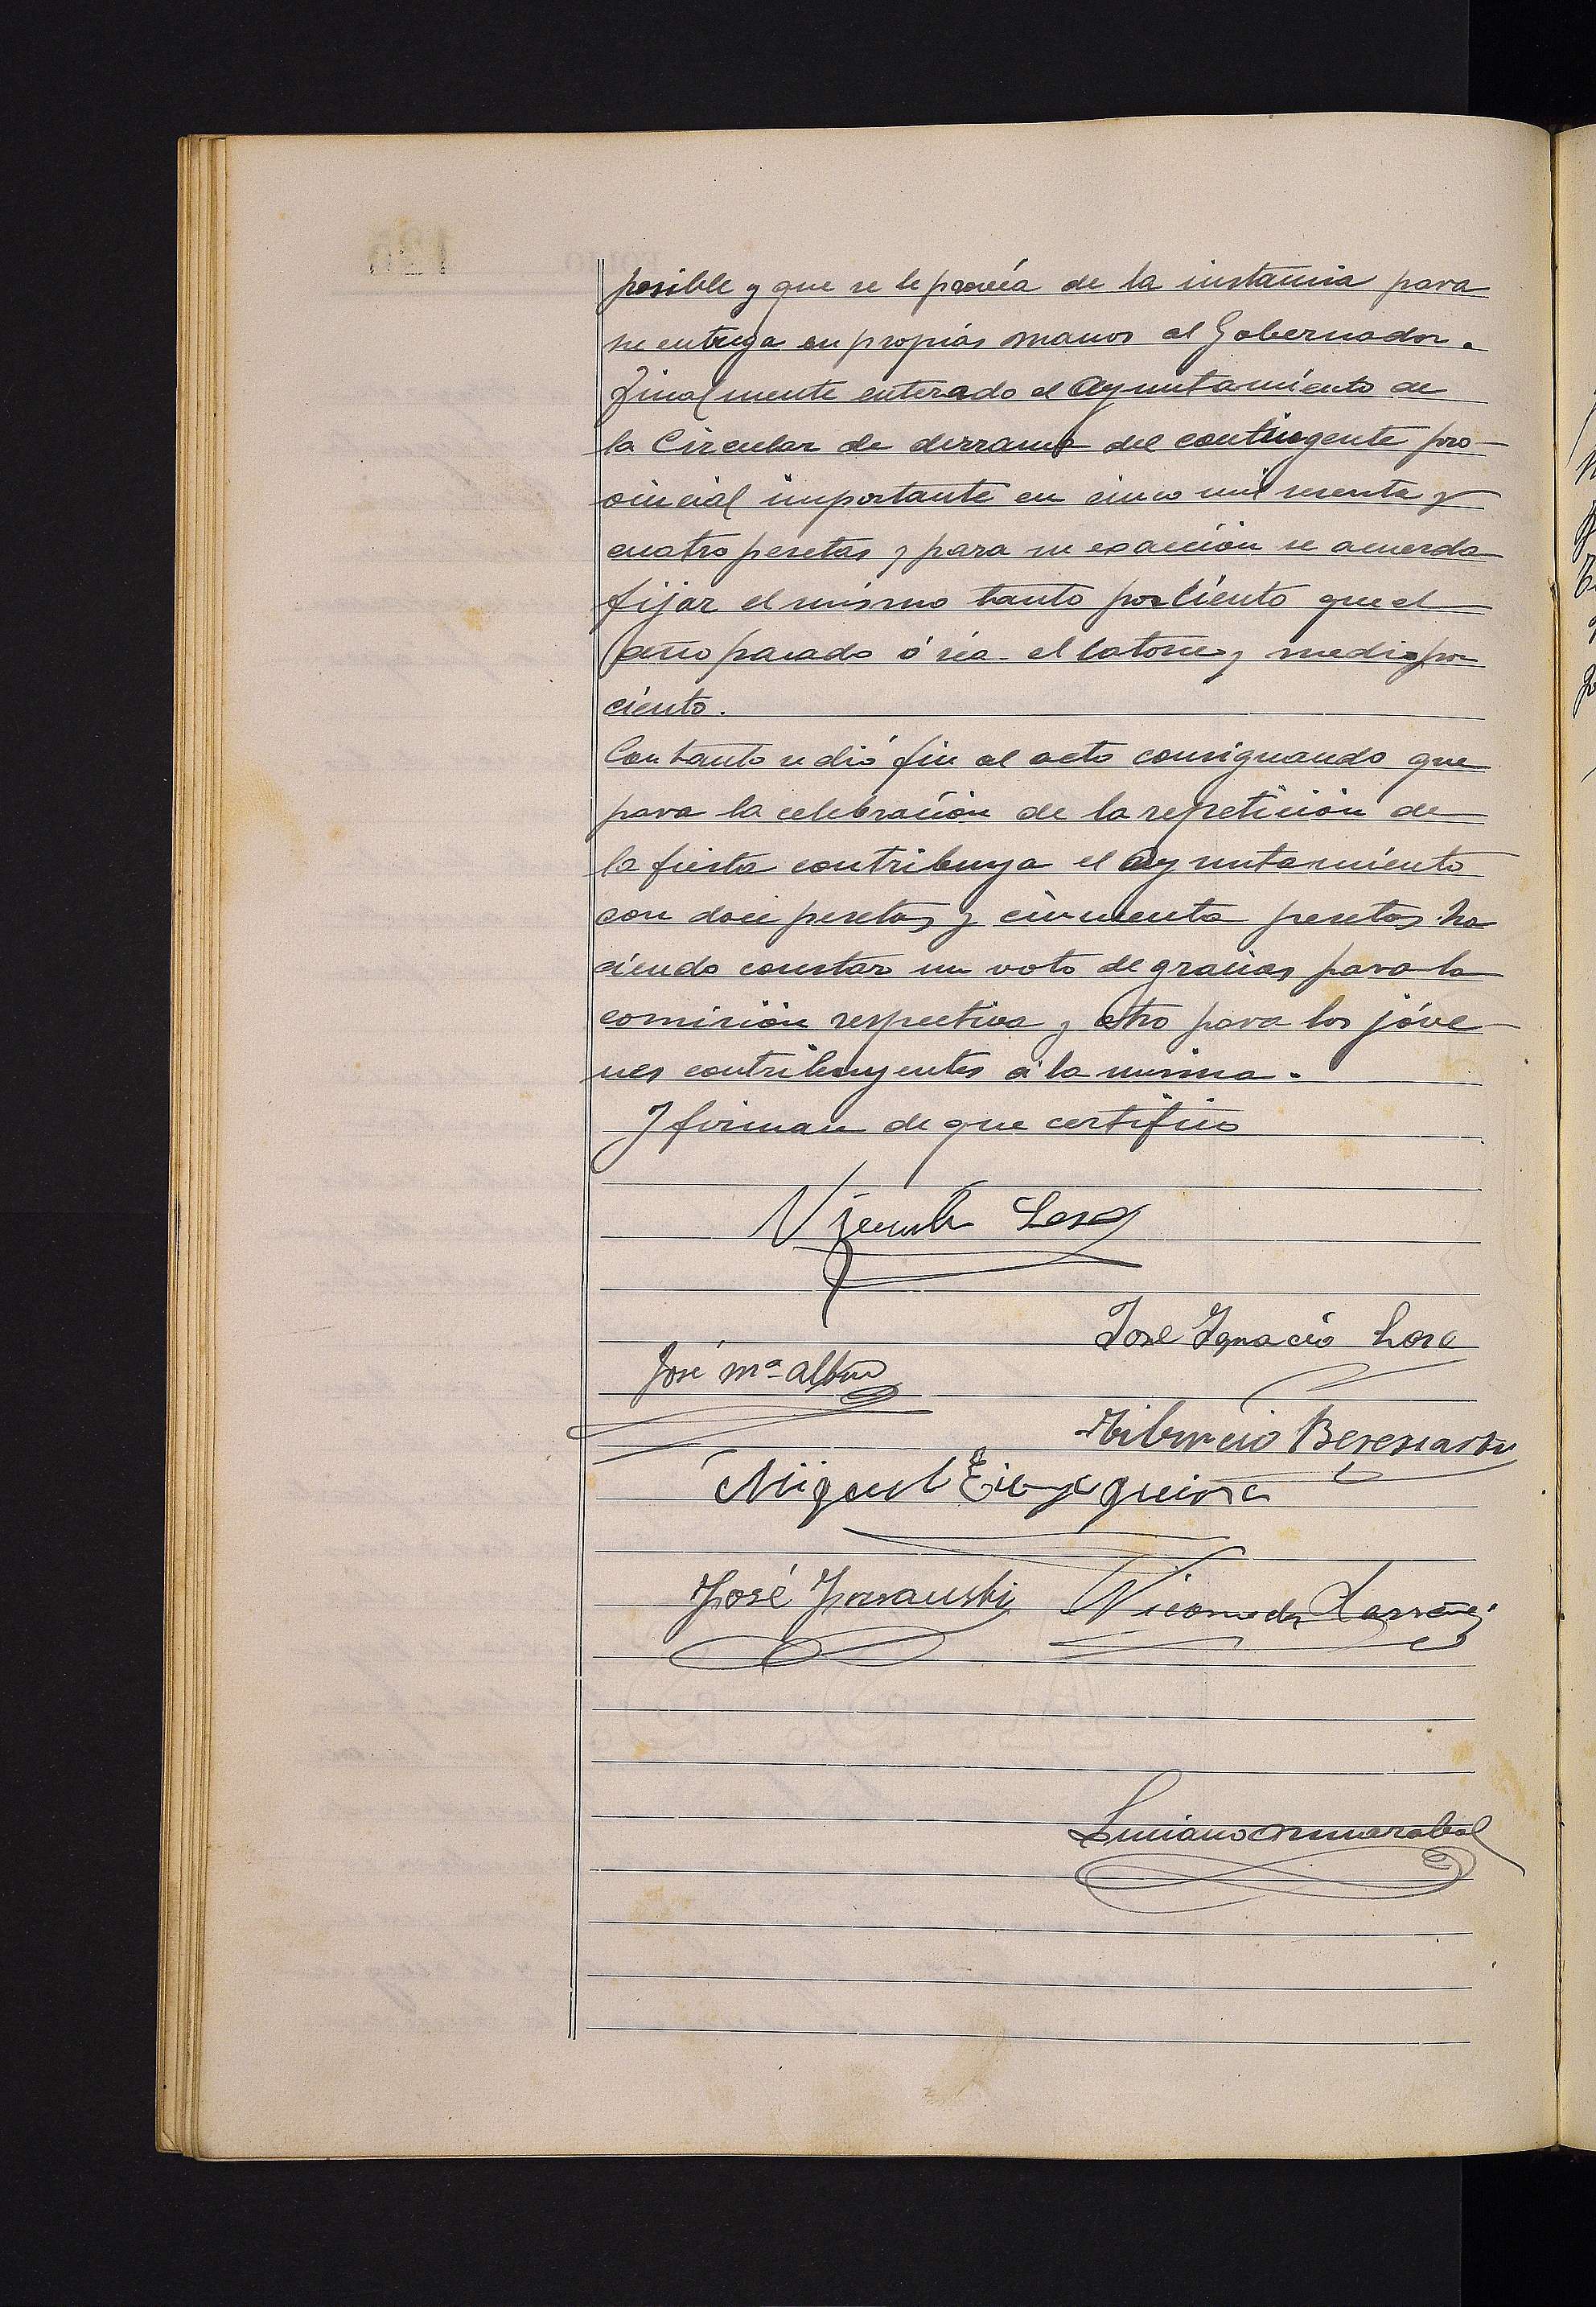 posible y que se le provéa de la instancia para
su entrega en propias manos al Gobernador.
Finalmente enterado el Ayuntamiento de
la Circular de derrama del contingente pro-
vincial importante en cinco mil sesenta y
cuatro pesetas y para su exacción se acuerda
fijar el mismo tanto por ciento que el
año pasado ó séa el catorce y medio por
ciento.
Con tanto se dió fin al acto consignando que
para la celebración de la repetición de
la fiesta contribuya el Ayuntamiento
con doce pesetas y cincuenta pesetas ha
ciendo constar un voto de gracias para la
comisión respectiva y otro para los jóve-
nes contribuyentes á la misma.
Y firman de que certifico
Vicente Lasa
José Ignacio Lasa
José Mª
Tiburcio
Miguel
José Nicomedes
Luciano